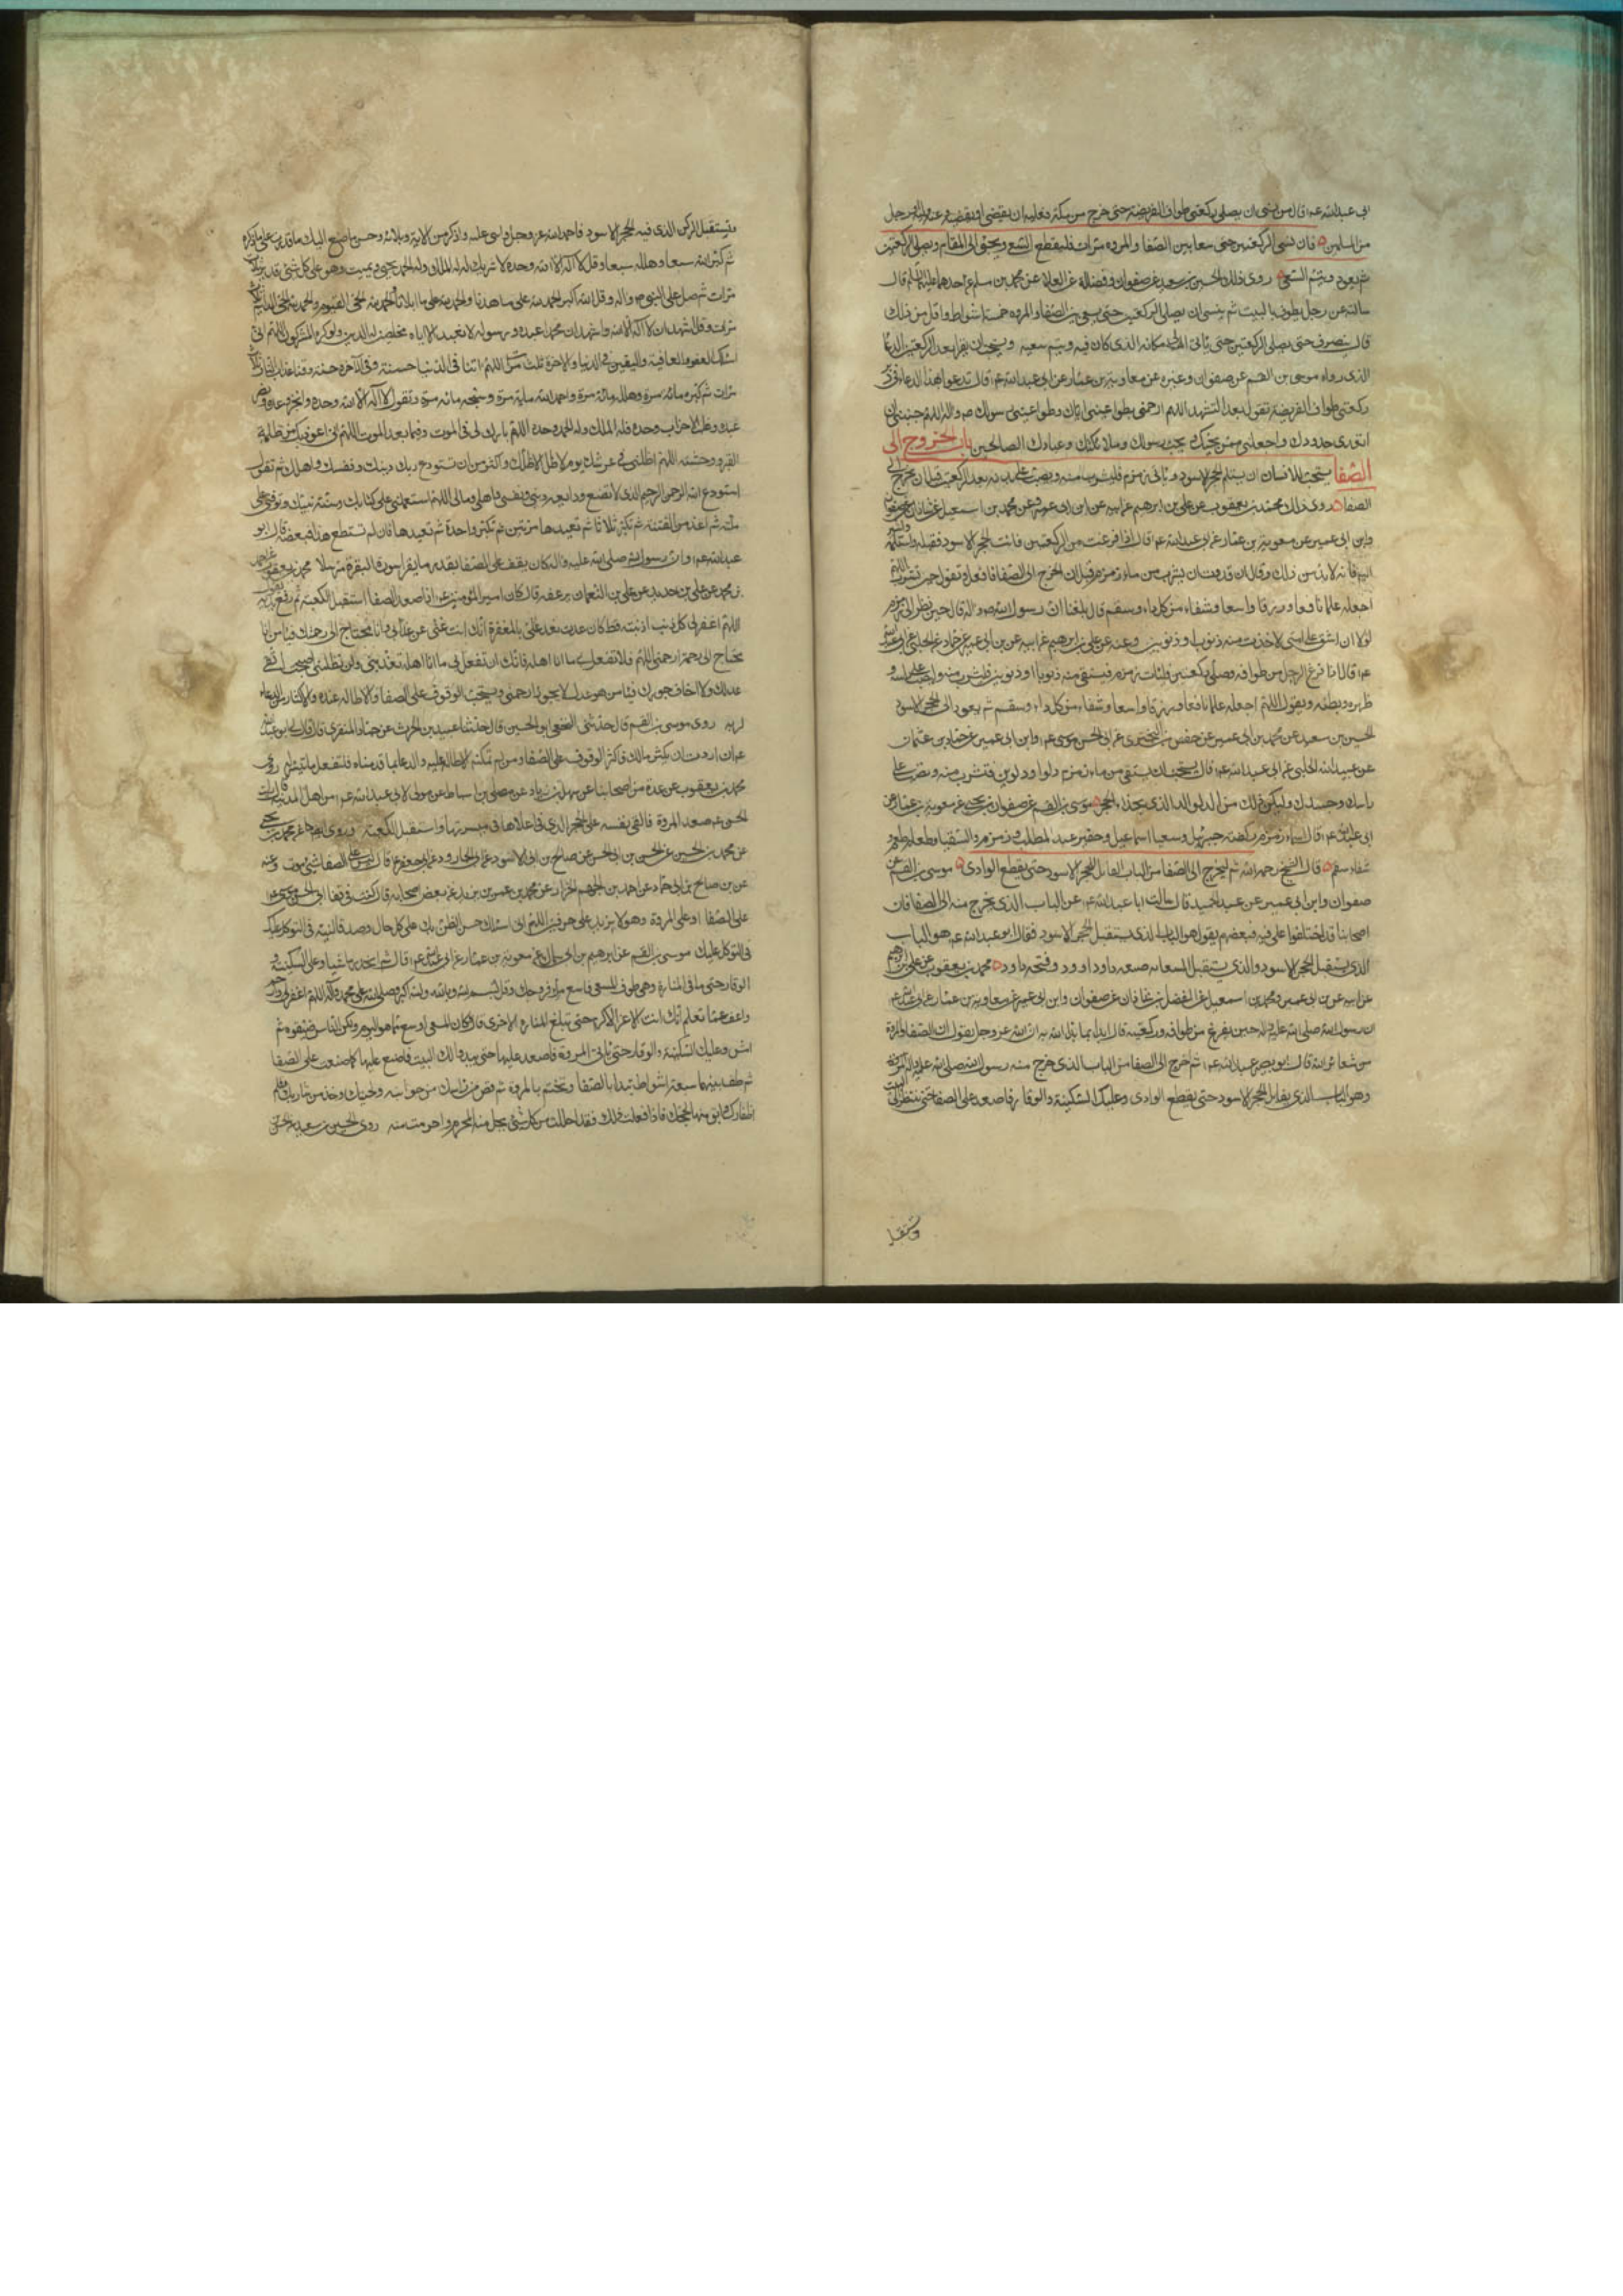 ابى عبدالله عم قال من نسى ان يصلى ركعتى طواف الفريضة حتى خرج من مكة فعليه ان يقضى او يقضى عنه وليه او رجل
من المسلمين فان نسى الركعتين حتى سعا بين الصفا والمروه فليقطع السعى الى المقام ويصلى الركعتين
ثم يعود ويتم السعى روى ذلك الحسين بن سعيد عن صفوان وفضالة عن العلا عن محمد بن مسلم عن احدهما قال
سالته عن رجل يطوف بالبيت ثم ينسى ان يصلى الركعتين حتى يسعى بين الصفا والمروه خمسة اشواط واقل من ذلك
قال ينصرف حتى يصلى الركعتين حتى ياتى مكانه الذى كان فيه ويتم سعيه ويستحب ان يقرا بعد الركعتين الدعا
الذى رواه موسى بن القسم عن صفوان وغيره عن معاوية بن عمار عن ابى عبدالله عم قال تدعوا بهذا الدعاء فى
ركعتى طواف الفريضة تقول بعد التشهد اللهم ارحمنى بطواعيتى اياك وطواعيتى رسولك ص واله اللهم جنبنى ان
اتعدى حدودك واجعلنى ممن يحبك ويحب رسولك وملائكتك وعبادك الصالحين باب الخروج الى
الصفا يستحب للانسان ان يستلم الحجر الاسود وياتى زمزم فليشرب منه ويصب على بدنه بعد الركعتين قبل ان يخرج الى
الصفا روى ذلك محمد بن يعقوب عن على بن ابرهيم عن ابيه عن ابن ابى عمير وعن محمد بن اسمعيل عن الفضل بن شاذان عن صفوان
وابن ابى عمير عن معوية بن عمار عن ابى عبدالله عم قال اذا فرغت من الركعتين فائت الحجر الاسود فقبله واستلمه
اليه فانه لابد من ذلك وقال ان قدرت ان يشرب من ماء زمزم قبل ان تخرج الى الصفا فافعل وتقول حين تشرب اللهم
اجعله علما نافعا ورزقا واسعا وشفاء من كل داء وسقم قال بلغنا ان رسول الله ص واله قال حين نظر الى زمزم
لولا ان اشق على امتى لاخذت منه ذنوبا او ذنوبين وعنه عن على بن ابرهيم عن ابيه عن ابن ابى عمير عن حماد عن الحلبى عن ابى عبدالله
عم قال اذا فرغ الرجل من طوافه وصلى ركعتين فليات زمزم فيستقى منه ذنوبا او ذنوبين فليشرب منه وليصب على راسه و
ظهره وبطنه ويقول اللهم اجعله علما نافعا ورزقا واسعا وشفاء من كل داء وسقم ثم يعود الى الحجر الاسود
الحسين بن سعيد عن محمد بن ابى عمير عن حفص بن البخترى عن ابى الحسن موسى عم وابن ابى عمير عن حماد بن عثمان
عن عبيدالله الحلبى عن ابى عبدالله عم قال يستحب ان يستقى من ماء زمزم دلوا او دلوين فتشرب منه وتصب على
راسك وجسدك وليكن ذلك من الدلو الذى بحذاء الحجر موسى بن القسم عن صفوان بن يحيى عن معوية بن عمار عن
ابى عبدالله عم قال اسماء زمزم ركضة جبرئيل وسقيا اسماعيل وحفيرة عبد المطلب وزمزم والسقيا وطعام طعم
شفاء سقم قال الشيخ رحمه الله ثم ليخرج الى الصفا من الباب المقابل للحجر الاسود حتى يقطع الوادى موسى بن القسم عن
صفوان وابن ابى عمير عن عبد الحميد قال سالت ابا عبدالله عم عن الباب الذى يخرج منه الى الصفا فان
اصحابنا قد اختلفوا على فيه فبعضهم يقول هو الباب الذى يستقبل الحجر الاسود فقال ابو عبدالله عم هو الباب
الذى يستقبل الحجر الاسود والذى يستقبل صنعه داود وفتحه داود محمد بن يعقوب عن على بن ابرهيم
عن ابيه عن ابن ابى عمير ومحمد بن اسمعيل عن الفضل بن شاذان عن صفوان وابن ابى عمير عن معاوية بن عمار عن ابى عبدالله عم
ان رسول الله صلى الله عليه واله حين يفرغ من طوافه وركعتيه قال ابدا بما بدا الله به ان الله عز وجل يقول ان الصفا والمروة
من شعائر الله قال ابو عبدالله عم ثم اخرج الى الصفا من الباب الذى خرج منه رسول الله صلى الله عليه واله
وهو الباب الذى يقابل الحجر الاسود حتى يقطع الوادى وعليك السكينة والوقار فاصعد على الصفا حتى تنظر الى البيت
وتستقبل الركن الذى فيه الحجر الاسود فاحمد الله عز وجل واثن عليه واذكر من الائه وبلائه وحسن ما صنع اليك ما قدرت على ذكره
ثم كبر الله سبعا وهلله سبعا وقل لا اله الا الله وحده لا شريك له له الملك وله الحمد يحيى ويميت وهو على كل شئ قدير ثلث
مرات ثم صل على النبى ص واله وقل الله اكبر الحمد لله على ما هدنا والحمد لله على ما ابلانا والحمد لله الحى القيوم والحمد لله الحى الدائم ثلث
مرات وقل اشهد ان لا اله الا الله واشهد ان محمدا عبده ورسوله لا نعبد الا اياه مخلصين له الدين ولو كره المشركون اللهم انى
اسئلك العفو والعافية واليقين فى الدنيا والاخرة ثلث مرات اللهم اتنا فى الدنيا حسنة وفى الاخره حسنة وقنا عذاب النار ثلث
مرات ثم كبره مائة مرة وهلل مائة مرة واحمد الله ماية مرة وسبحه مائة مرة وتقول لا اله الا الله وحده وانجز وعده ونصر
عبده وغلب الاحزاب وحده فله الملك وله الحمد وحده اللهم بارك لى فى الموت وفيما بعد الموت اللهم انى اعوذ بك من ظلمة
القبر ووحشته اللهم اظلنى فى عرشك يوم لا ظل الا ظلك واكثر من ان تستودع ربك دينك ونفسك واهلك ثم تقول
استودع الله الرحمن الرحيم الذى لا تضيع ودايعه دينى ونفسى واهلى ومالى اللهم استعملنى على كتابك وسنة نبيك وتوفنى على
ملته ثم اعذنى من الفتنة ثم تكبر ثلاثا ثم تعيدها مرتين ثم تكبر واحدة ثم تعيدها فان لم تستطع هذا فبعضه قال ابو
عبدالله عم وان رسول الله صلى الله عليه واله كان يقف على الصفا بقدر ما يقرا سورة البقرة مترسلا محمد بن يعقوب عن احمد
بن محمد عن على بن حديد عن على بن النعمان يرفعه قال كان امير المؤمنين عم اذا صعد الصفا استقبل الكعبة ثم رفع يديه
اللهم اغفر لى كل ذنب اذنبته قط فان عدت فعد على بالمغفرة انك انت غنى عن عذابى وانا محتاج الى رحمتك فيا من انا
محتاج الى رحمته ارحمنى اللهم فلا تفعل بى ما انا اهله فانك ان تفعل بى ما انا اهله تعذبنى ولن تظلمنى اصبحت اتقى
عدلك ولا اخاف جورك فيا من هو عدل لا يجور ارحمنى ويستحب الوقوف على الصفا والاطاله عنده والاكثار من الدعاء
لربه روى موسى بن القسم قال حدثنى النخعى ابو الحسين قال حدثنا عبيد بن الحرث عن حماد المنقرى قال قال لى ابو عبدالله
عم ان اردت ان يكثر مالك فاكثر الوقوف على الصفا ومن لم تمكنه الاطاله عليه والدعا بما قدمناه فليفعل ما تيسر روى
محمد بن يعقوب عن عدة من اصحابنا عن سهل بن زياد عن على بن اسباط عن مولى لابى عبدالله عم من اهل المدينة قال رايت ابا
الحسن عم صعد المروة فالقى نفسه على الحجر الذى فى اعلاها فى ميسرتها واستقبل الكعبة وروى ايضا عن محمد بن يحيى
عن محمد بن الحسين عن الحسن بن ابى الحسن عن صالح بن ابى الاسود عن ابى الجارود عن ابى جعفر عم قال ليس على الصفا شئ موقت وعنه
عن صالح بن ابى حماد عن احمد بن الجهم الخزاز عن محمد بن عمر بن يزيد عن بعض اصحابه قال كنت فى قفا ابى الحسن موسى عم
على الصفا او على المروة وهو لا يزيد على حرفين اللهم انى اسئلك حسن الظن بك على كل حال وصدق النية فى التوكل عليك
فى التوكل عليك موسى بن القسم عن ابرهيم بن ابى سمال عن معوية بن عمار عن ابى عبدالله عم قال ثم انحدر ماشيا وعليك السكينة و
الوقار حتى تاتى المنارة وهى طرف المسعى فاسع ملأ فروجك وقل بسم الله وبالله والله اكبر وصلى الله على محمد واله اللهم اغفر لى وارحم
واعف عما تعلم انك انت الاعز الاكرم حتى تبلغ المناره الاخرى قال وكان المسعى اوسع مما هو اليوم ولكن الناس ضيقوه ثم
امش وعليك السكينة والوقار حتى تاتى المروة فاصعد عليها حتى يبدو لك البيت فاصنع عليها كما صنعت على الصفا
ثم طف بينهما سبعة اشواط تبدا بالصفا وتختم بالمروة ثم قص من راسك من جوانبه ولحيتك وخذ من شاربك وقلم
اظفارك وابق منها لحجك فاذا فعلت ذلك فقد احللت من كل شئ يحل منه المحرم واحرمت منه روى الحسين بن سعيد